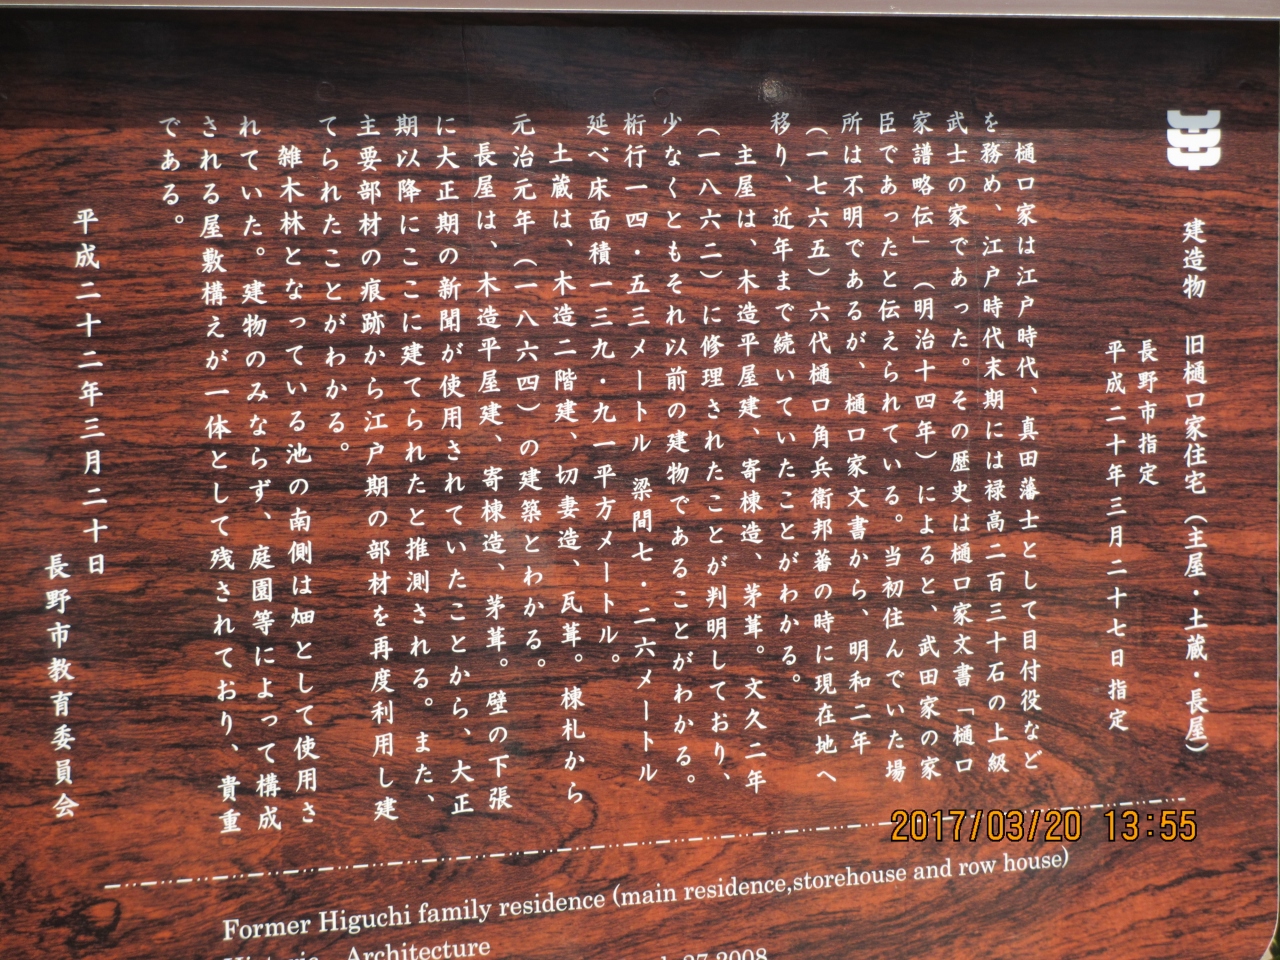 建造物　旧樋口家住宅（主屋・土蔵・長屋）
長野市指定
平成二十年三月二十七日指定
樋口家は江戸時代、真田藩士として目付役など
を務め、江戸時代末期には禄高二百三十石の上級
武士の家であった。その歴史は樋口家文書「樋口
家譜略伝」（明治十四年）によると、武田家の家
臣であったと伝えられている。当初住んでいた場
所は不明であるが、樋口家文書から、明和二年
（一七六五）六代樋口角兵衛邦蕃の時に現在地へ
移り、近年まで続いていたことがわかる。
主屋は、木造平屋建、寄棟造、茅葺。文久二年
（一八六二）に修理されたことが判明しており、
少なくともそれ以前の建物であることがわかる。
桁行一四・五三メートル　梁間七・二六メートル
延べ床面積一三九・九一平方メートル。
土蔵は、木造二階建、切妻造、瓦葺。棟札から
元治元年（一八六四）の建築とわかる。
長屋は、木造平屋建、寄棟造、茅葺。壁の下張
に大正期の新聞が使用されていたことから、大正
期以降にここに建てられたと推測される。また、
主要部材の痕跡から江戸期の部材を再度利用し建
てられたことがわかる。
雑木林となっている池の南側は畑として使用さ
れていた。建物のみならず、庭園等によって構成
される屋敷構えが一体として残されており、貴重
である。
平成二十二年三月二十日
長野市教育委員会
Former Higuchi family residence (main residence,storehouse and row house)
Architecture
27,2008
2017/03/20 13:55